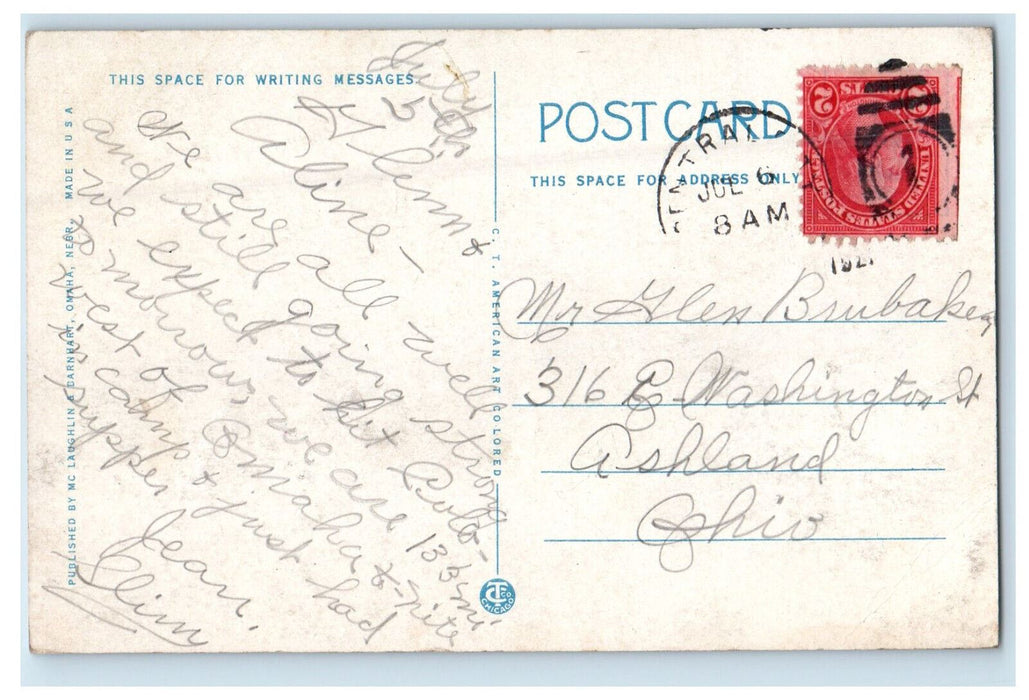 THIS SPACE FOR WRITING MESSAGES
July 5th
Glenn &
Aline –
We are all well strong
and still going to hit Colo-
we expect
tomorrow. We are 135 mi.
west of Omaha to-nite
in camp & just had
supper
Jean.
Slim
PUBLISHED BY MC LAUGHLIN & BARNHART, OMAHA, NEBR. MADE IN U S A
C. T. AMERICAN ART COLORED
CT CO CHICAGO
POST CARD
THIS SPACE FOR ADDRESS ONLY
CENTRAL
JUL 6
8 AM
192
UNITED STATES POSTAGE
2 CENTS 2
Mr Glen Brubaker
316 E. Washington St
Ashland
Ohio